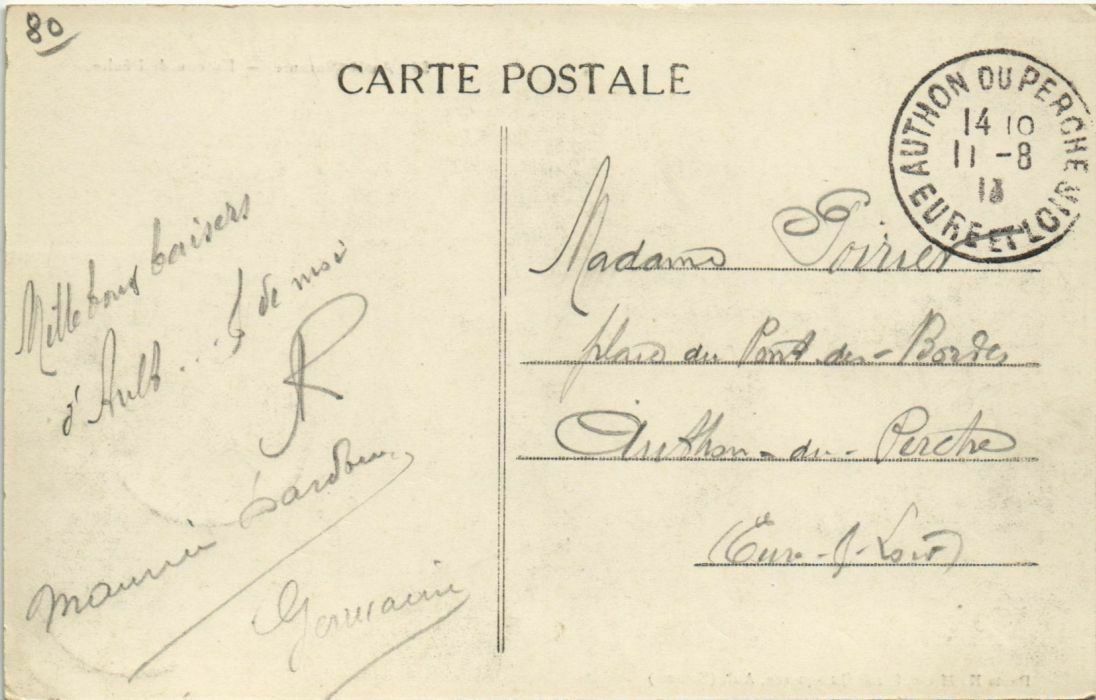 80
CARTE POSTALE
AUTHON DU PERCHE
14 10
11 -8
13
EURE ET LOIR
Mille bons baisers
d'Ault. . de moi
R
Maurice
Germaine
Madame Poirier
place du Pont-des-Bordes
Authon-du-Perche
(Eure-&-Loir)